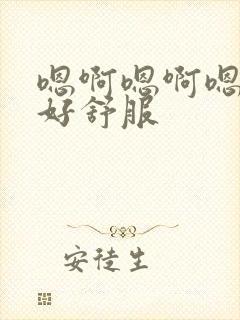 嗯啊嗯啊嗯
好舒服
安徒生